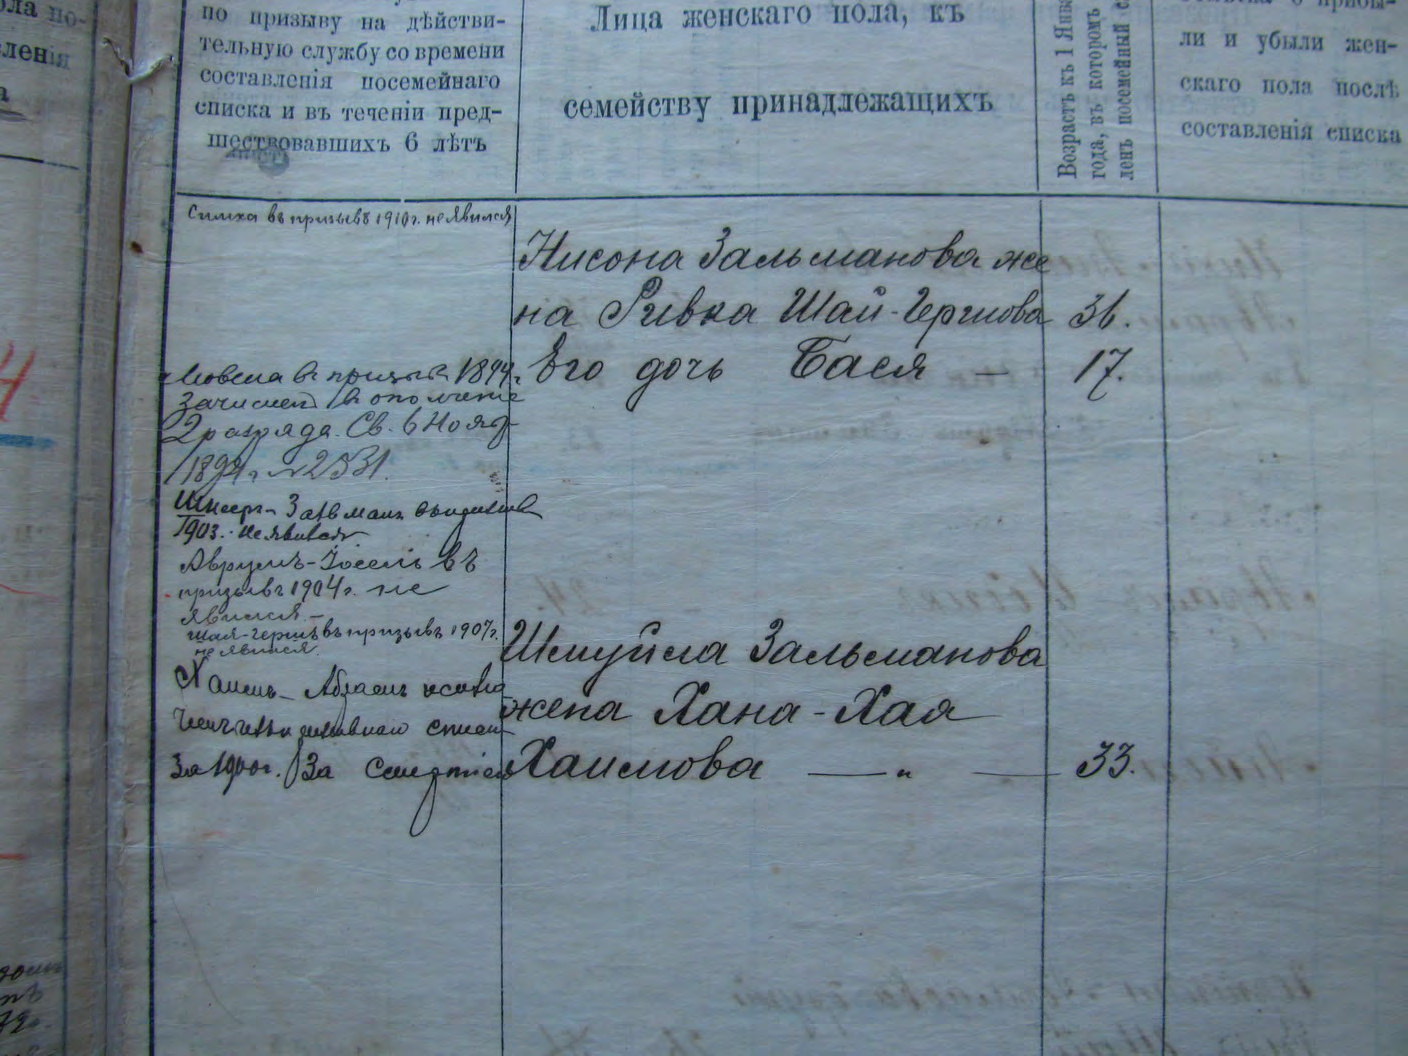 по призыву на дѣйстви-
тельную службу со времени
составленія посемейнаго
списка и въ теченіи пред-
шествовавшихъ 6 лѣтъ
Лица женскаго пола, къ
семейству принадлежащихъ
Возрастъ къ 1 Янва
года, въ которомъ
ленъ посемейный с
ли и убыли жен-
скаго пола послѣ
составленія списка
Симха въ призывѣ 1910 г. не явился
Мовша въ призыв 1894 г.
зачислен в ополчение
2 разряда. Св. 6 Нояб
1894 г. № 2531.
Залман
1903. не явился
Аврумъ-Іосель въ
призывъ 1904 г. не
явился
Шая-Гершъ въ призывъ 1907 г.
не явился.
за 1900 г. За смертію
Нисона Зальманова же
на Ривка Шай-Гершова 36.
Его дочь Бася — 17.
Шмуйла Зальманова
жена Хана-Хая
Хаимова — „ — 33.